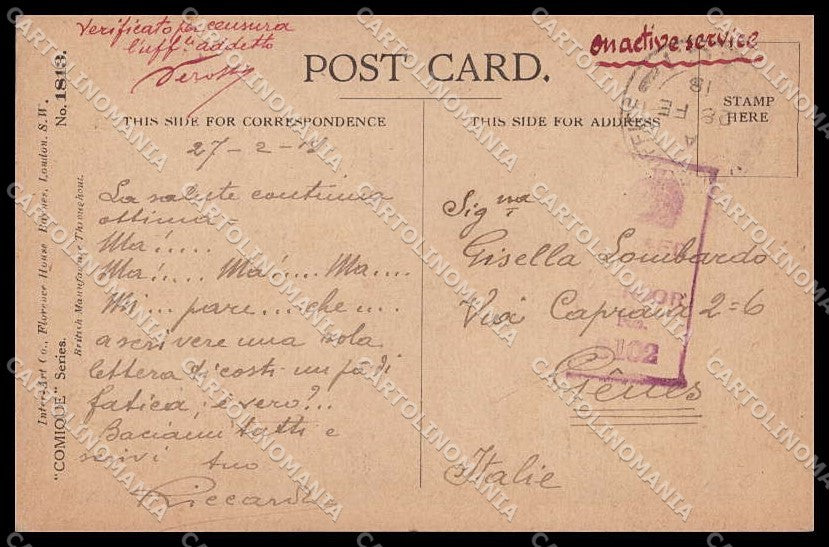 Verificato per censura
l'uff. addetto
on active service
POST CARD.
STAMP
HERE
THIS SIDE FOR CORRESPONDENCE
THIS SIDE FOR ADDRESS
27-2-18
La salute continua
ottima =
Ma!.....
Ma.... Ma!.... Ma....
Mi... pare... che...
a scrivere una sola
lettera ti costi un pò di
fatica, è vero?..
Baciami tutti e
scrivi tuo
Riccardo
Sig.na
Gisella Lombardo
Via Caprara 2=6
Gênes
Italie
No.
102
Inter-Art Co., Florence House, Barnes, London, S.W.
British Manufacture Throughout.
"COMIQUE" Series. No. 1813.
CARTOLINOMANIA